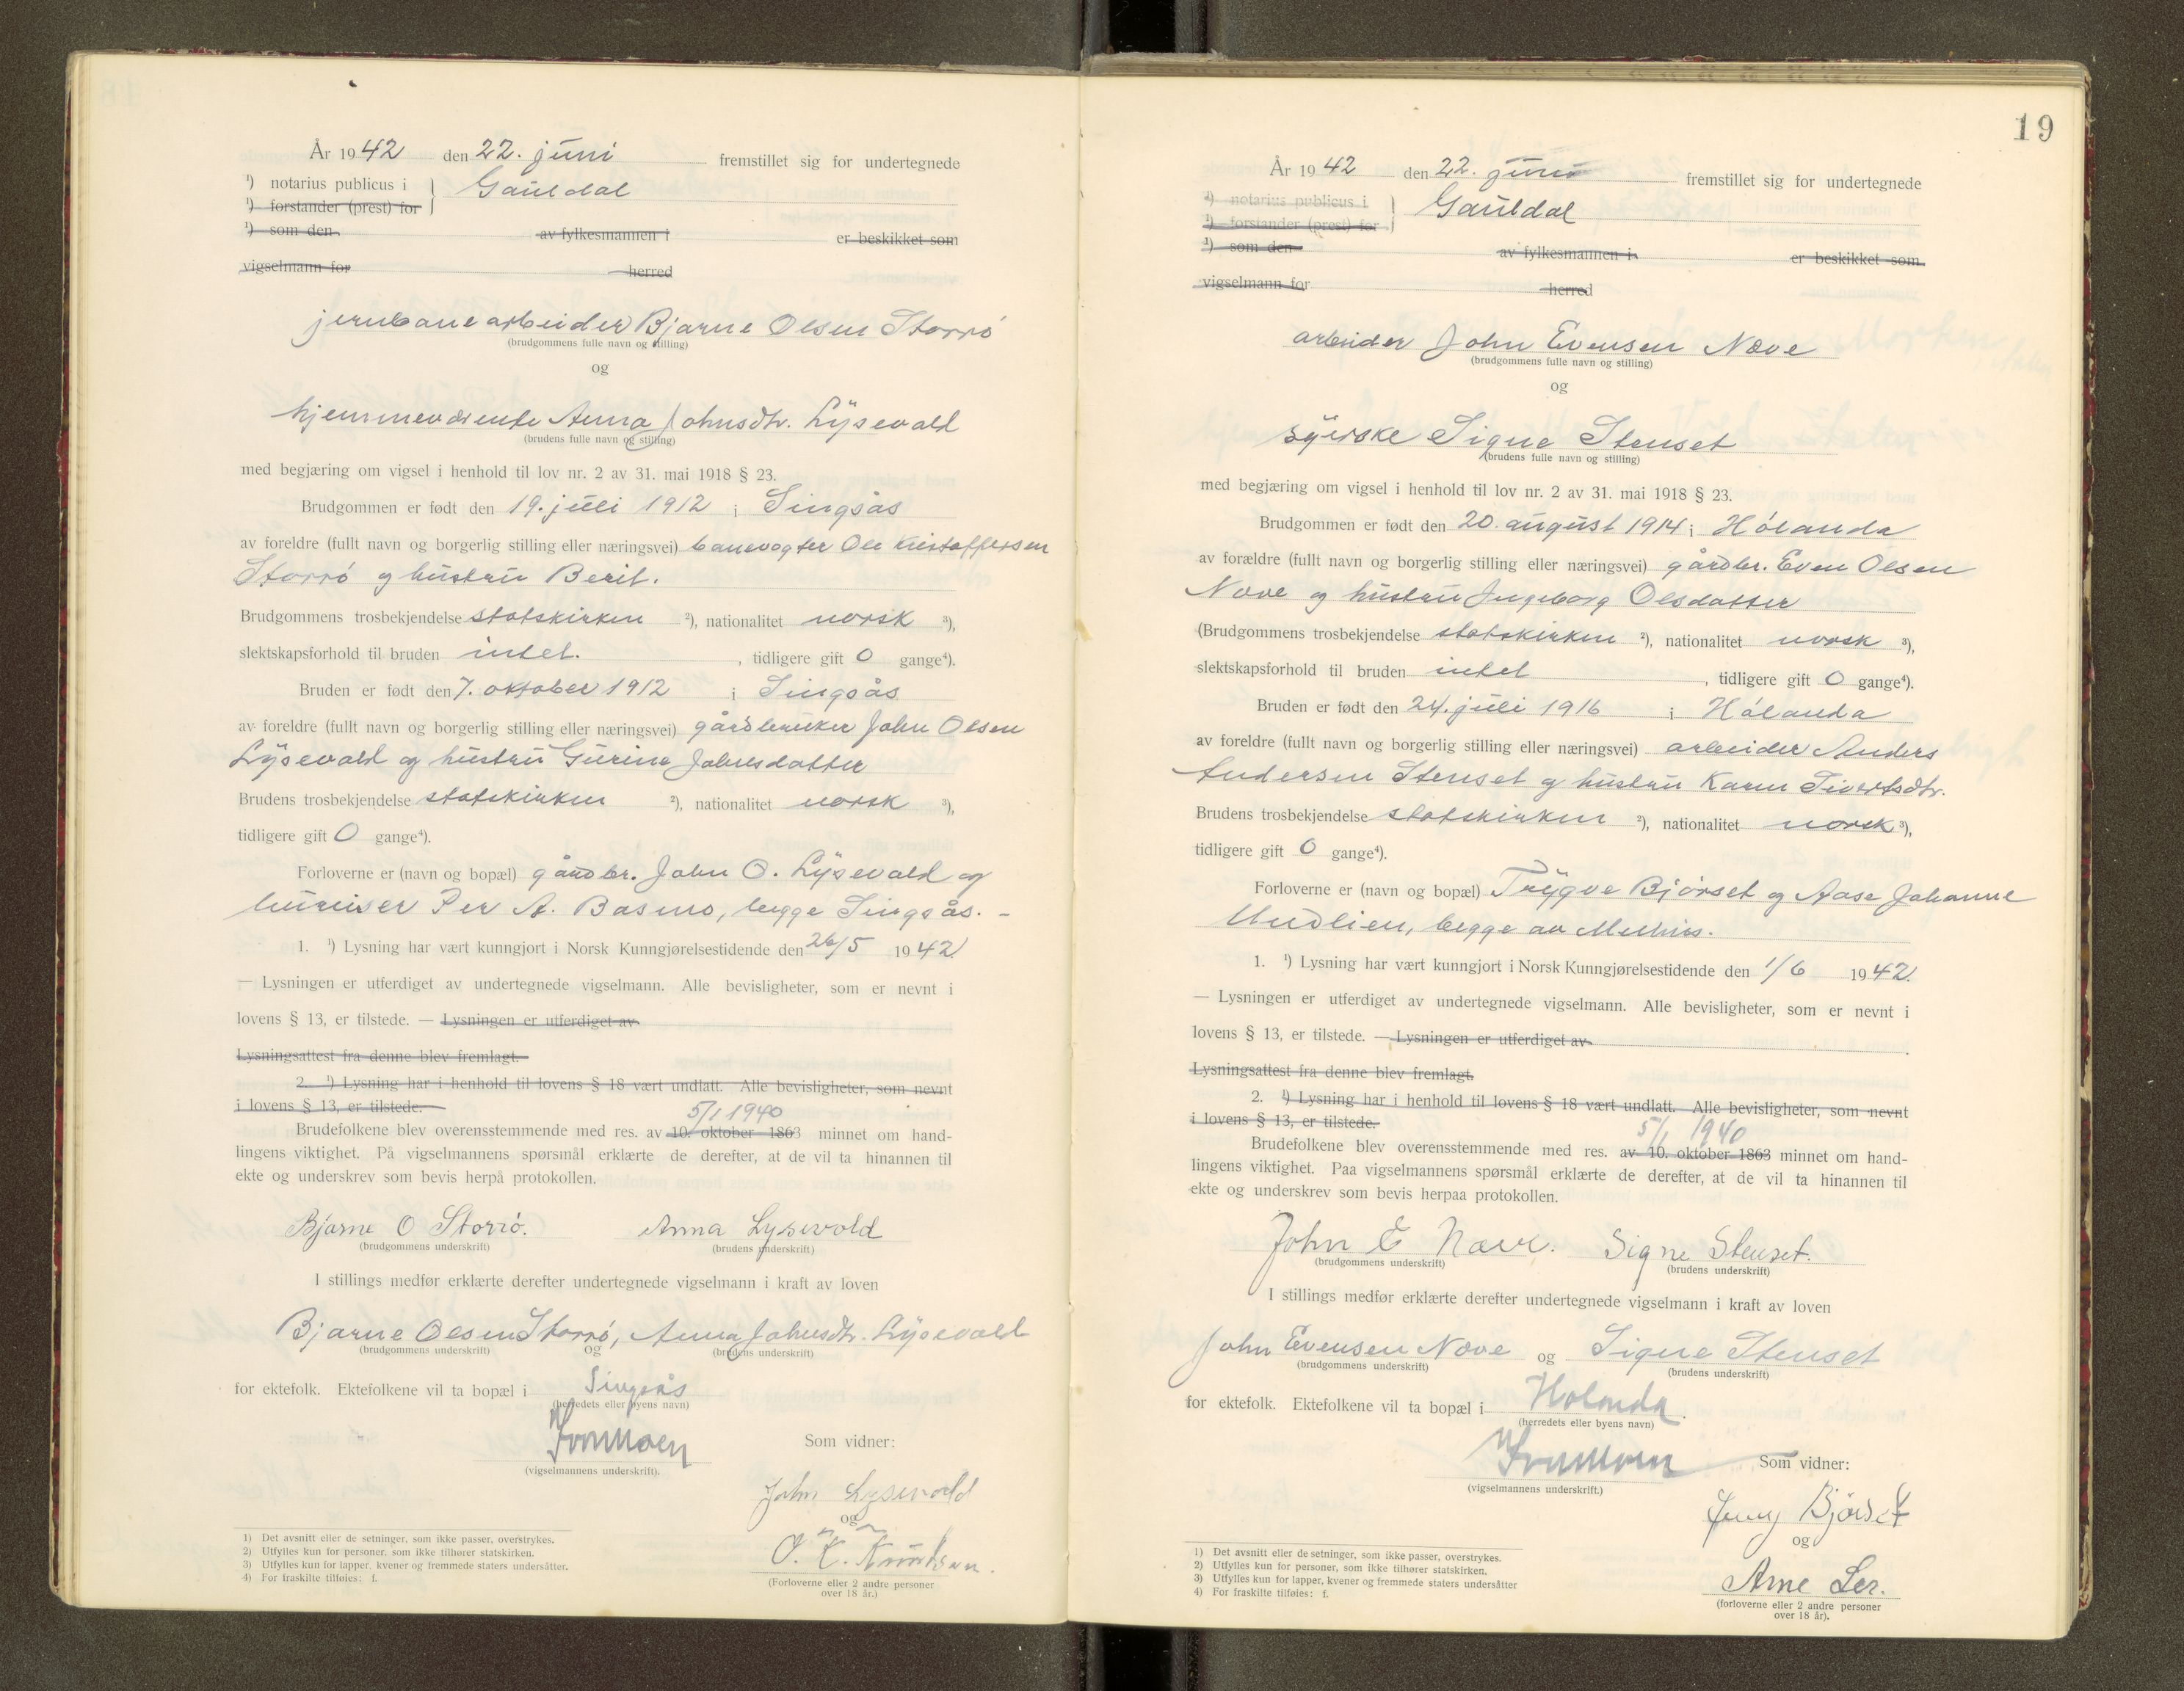 År 1942 den 22. juni fremstillet sig for undertegnede
¹) notarius publicus i } Gauldal
¹) forstander (prest) for
¹) som den av fylkesmannen i er beskikket som
vigselmann for herred
jernbanearbeider Bjarne Olsen Storrø
(brudgommens fulle navn og stilling)
og
hjemmeværende Anna Johnsdtr. Lysevold
(brudens fulle navn og stilling)
med begjæring om vigsel i henhold til lov nr. 2 av 31. mai 1918 § 23.
Brudgommen er født den 19. juli 1912 i Singsås
av foreldre (fullt navn og borgerlig stilling eller næringsvei) banevogter Ole Kristoffersen
Storrø og hustru Berit.
Brudgommens trosbekjendelse statskirken ²), nationalitet norsk ³),
slektskapsforhold til bruden intet. , tidligere gift 0 gange⁴).
Bruden er født den 7. oktober 1912 i Singsås
av foreldre (fullt navn og borgerlig stilling eller næringsvei) gårdbruker John Olsen
Lysevold og hustru Gurine Johnsdatter
Brudens trosbekjendelse statskirken ²), nationalitet norsk ³),
tidligere gift 0 gange⁴).
Forloverne er (navn og bopæl) gårdbr. John O. Lysevold og
Per A. Basmo, begge Singsås. -
1. ¹) Lysning har vært kunngjort i Norsk Kunngjørelsestidende den 26/5 1942
— Lysningen er utferdiget av undertegnede vigselmann. Alle bevisligheter, som er nevnt i
lovens § 13, er tilstede. — Lysningen er utferdiget av
Lysningsattest fra denne blev fremlagt.
2. ¹) Lysning har i henhold til lovens § 18 vært undlatt. Alle bevisligheter, som nevnt
i lovens § 13, er tilstede.
5/1 1940
Brudefolkene blev overensstemmende med res. av 10. oktober 1863 minnet om hand-
lingens viktighet. På vigselmannens spørsmål erklærte de derefter, at de vil ta hinannen til
ekte og underskrev som bevis herpå protokollen.
Bjarne O Storrø. Anna Lysevold
(brudgommens underskrift) (brudens underskrift)
I stillings medfør erklærte derefter undertegnede vigselmann i kraft av loven
Bjarne Olsen Storrø, Anna Johnsdtr. Lysevold
(brudgommens underskrift) og (brudens underskrift)
for ektefolk. Ektefolkene vil ta bopæl i Singsås
(herredets eller byens navn)
Som vidner:
(vigselmannens underskrift).
John Lysevold
og
O. K. Knudsen.
(Forloverne eller 2 andre personer
over 18 år.)
1) Det avsnitt eller de setninger, som ikke passer, overstrykes.
2) Utfylles kun for personer, som ikke tilhører statskirken.
3) Utfylles kun for lapper, kvener og fremmede staters undersåtter.
4) For fraskilte tilføies: f.
19
År 1942 den 22. juni fremstillet sig for undertegnede
¹) notarius publicus i } Gauldal
¹) forstander (prest) for
¹) som den av fylkesmannen i er beskikket som
vigselmann for herred
arbeider John Evensen Nove
(brudgommens fulle navn og stilling)
og
syerske Signe Stenset
(brudens fulle navn og stilling)
med begjæring om vigsel i henhold til lov nr. 2 av 31. mai 1918 § 23.
Brudgommen er født den 20. august 1914 i Hølonda
av forældre (fullt navn og borgerlig stilling eller næringsvei) gårdbr. Even Olsen
Nove og hustru Ingeborg Olsdatter
(Brudgommens trosbekjendelse statskirken ²), nationalitet norsk ³),
slektskapsforhold til bruden intet , tidligere gift 0 gange⁴).
Bruden er født den 24. juli 1916 i Hølonda
av foreldre (fullt navn og borgerlig stilling eller næringsvei) arbeider Anders
Andersen Stenset og hustru Karen Sivertsdtr.
Brudens trosbekjendelse statskirken ²), nationalitet norsk ³),
tidligere gift 0 gange⁴).
Forloverne er (navn og bopæl) Trygve Bjørset og Aase Johanne
Undlien, begge av Melhus.
1. ¹) Lysning har vært kunngjort i Norsk Kunngjørelsestidende den 1/6 1942.
— Lysningen er utferdiget av undertegnede vigselmann. Alle bevisligheter, som er nevnt i
lovens § 13, er tilstede. — Lysningen er utferdiget av
Lysningsattest fra denne blev fremlagt.
2. ¹) Lysning har i henhold til lovens § 18 vært undlatt. Alle bevisligheter, som nevnt
i lovens § 13, er tilstede.
5/1 1940
Brudefolkene blev overensstemmende med res. av 10. oktober 1863 minnet om hand-
lingens viktighet. Paa vigselmannens spørsmål erklærte de derefter, at de vil ta hinannen til
ekte og underskrev som bevis herpaa protokollen.
John E Næve. Signe Stenset.
(brudgommens underskrift) (brudens underskrift)
I stillings medfør erklærte derefter undertegnede vigselmann i kraft av loven
John Evensen Nove og Signe Stenset
(brudgommens underskrift) (brudens underskrift)
for ektefolk. Ektefolkene vil ta bopæl i Hølonda.
(herredets eller byens navn)
Som vidner:
(vigselmannens underskrift.)
Bjørset
og
Arne Ler.
(forloverne eller 2 andre personer
over 18 år).
1) Det avsnitt eller de setninger, som ikke passer, overstrykes.
2) Utfylles kun for personer, som ikke tilhører statskirken.
3) Utfylles kun for lapper, kvener og fremmede staters undersåtter
4) For fraskilte tilføies: f.